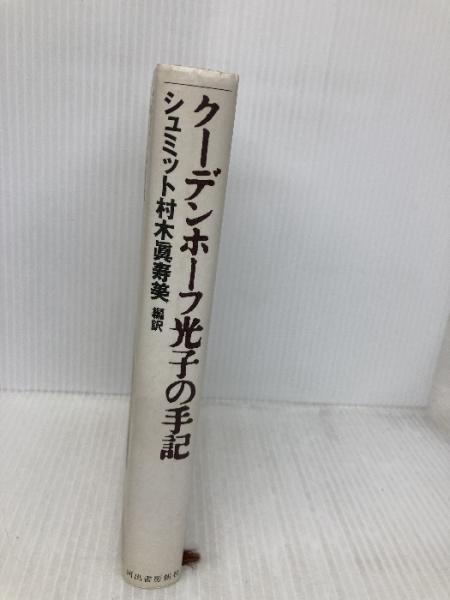 クーデンホーフ光子の手記
シュミット村木眞寿美 編訳
河出書房新社